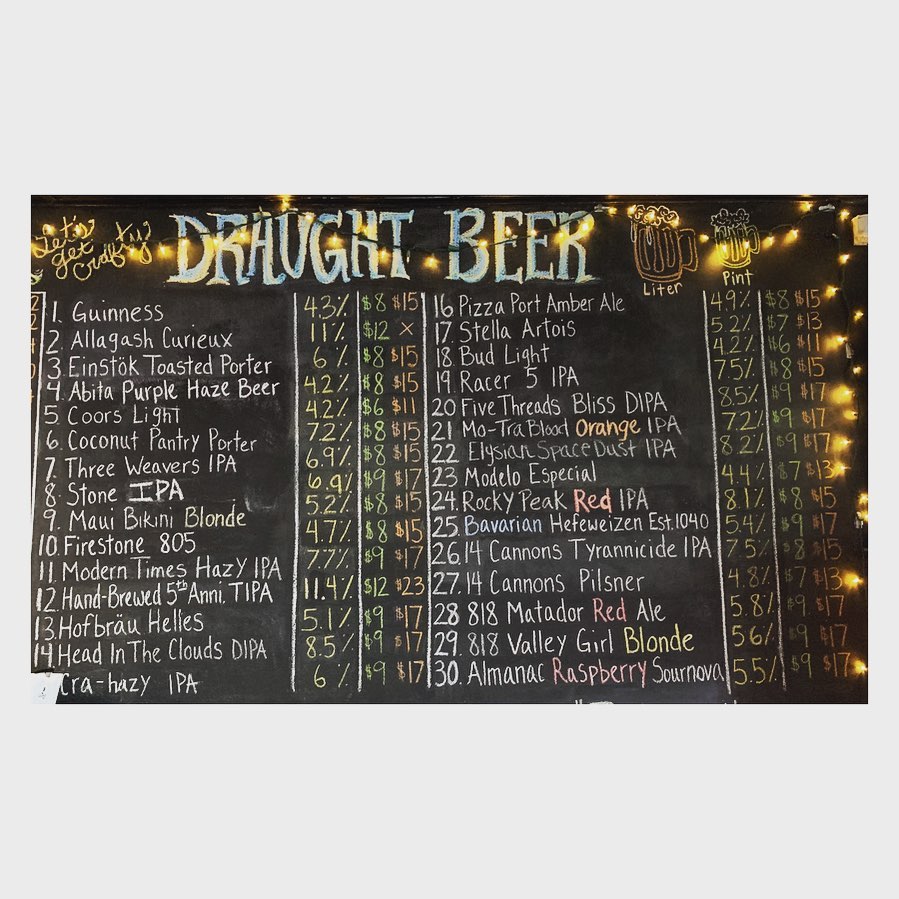 Let's
get
Crafty
DRAUGHT BEER
Liter
Pint
1. Guinness 4.3% $8 $15
2. Allagash Curieux 11% $12 X
3. Einstök Toasted Porter 6% $8 $15
4. Abita Purple Haze Beer 4.2% $8 $15
5. Coors Light 4.2% $6 $11
6. Coconut Pantry Porter 7.2% $8 $15
7. Three Weavers IPA 6.9% $8 $15
8. Stone IPA 6.9% $9 $17
9. Maui Bikini Blonde 5.2% $8 $15
10. Firestone 805 4.7% $8 $15
11. Modern Times Hazy IPA 7.7% $9 $17
12. Hand-Brewed 5th Anni. TIPA 11.4% $12 $23
13. Hofbräu Helles 5.1% $9 $17
14 Head In The Clouds DIPA 8.5% $9 $17
Cra-hazy IPA 6% $9 $17
16 Pizza Port Amber Ale 4.9% $8 $15
17 Stella Artois 5.2% $7 $13
18 Bud Light 4.2% $6 $11
19 Racer 5 IPA 7.5% $8 $15
20 Five Threads Bliss DIPA 8.5% $9 $17
21 Mo-Tra Blood Orange IPA 7.2% $9 $17
22 Elysian Space Dust IPA 8.2% $9 $17
23 Modelo Especial 4.4% $7 $13
24. Rocky Peak Red IPA 8.1% $8 $15
25. Bavarian Hefeweizen Est. 1040 5.4% $9 $17
26. 14 Cannons Tyrannicide IPA 7.5% $8 $15
27. 14 Cannons Pilsner 4.8% $7 $13
28 818 Matador Red Ale 5.8% $9 $17
29. 818 Valley Girl Blonde 5.6% $9 $17
30. Almanac Raspberry Sournova 5.5% $9 $17